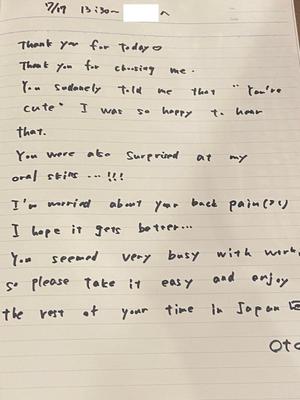 7/17 13:30~ へ
Thank you for today
Thank you for choosing me.
You suddenely told me that "You're
cute" I was so happy to hear
that.
You were also surprised at my
oral skills ...!!!
I'm worried about your back pain(>_<)
I hope it gets better...
You seemed very busy with work,
so please take it easy and enjoy
the rest of your time in Japan